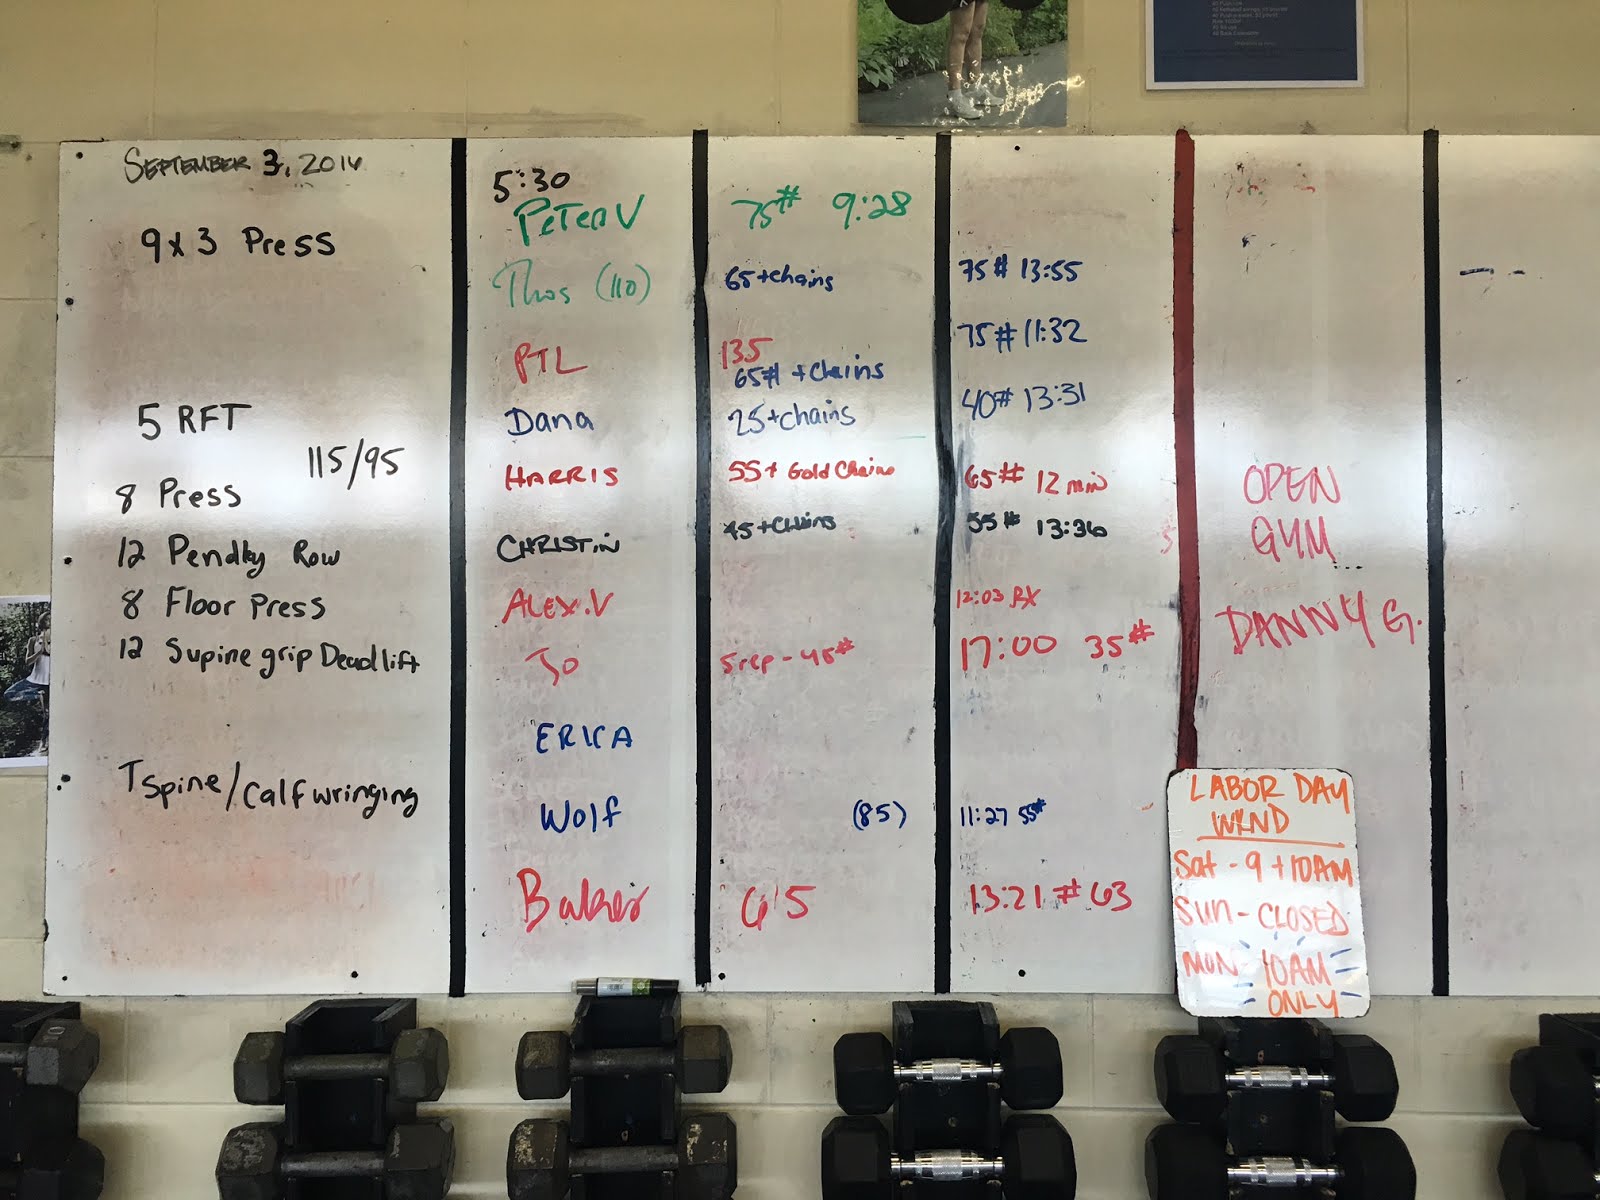 SEPTEMBER 3, 2016
9x3 Press
5 RFT
115/95
8 Press
12 Pendlay Row
8 Floor Press
12 Supine grip Deadlift
T Spine/Calf wringing
5:30
PETER V 75# 9:28
Thos (110) 65+chains 75# 13:55
75# 11:32
PTL 135
65# + Chains
Dana 25+chains 40# 13:31
HARRIS 55+ Gold Chains 65# 12 min
CHRISTIN 45+Chains 55# 13:36
ALEX.V 12:03 RX
JO 5rep-45# 17:00 35#
ERICA
Wolf (85) 11:27 55#
Baker 615 13:21 #63
OPEN
GYM...
DANNY G.
LABOR DAY
WKND
Sat - 9 + 10AM
Sun - CLOSED
MON - 10AM
ONLY